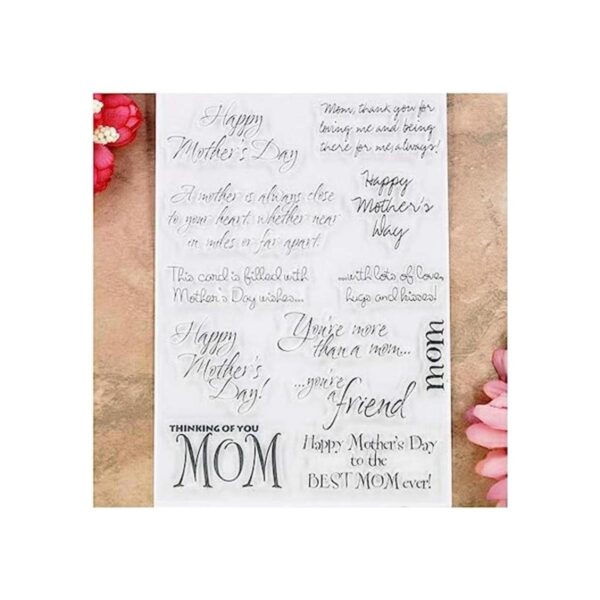 Happy
Mother's Day
Mom, thank you for
loving me and being
there for me, always!
A mother is always close
to your heart, whether near
in miles or far apart.
Happy
Mother's
Day
This card is filled with
Mother's Day wishes...
...with lots of love,
hugs and kisses!
Happy
Mother's
Day!
You're more
than a mom...
...you're
a
friend
mom
THINKING OF YOU
MOM
Happy Mother's Day
to the
BEST MOM ever!